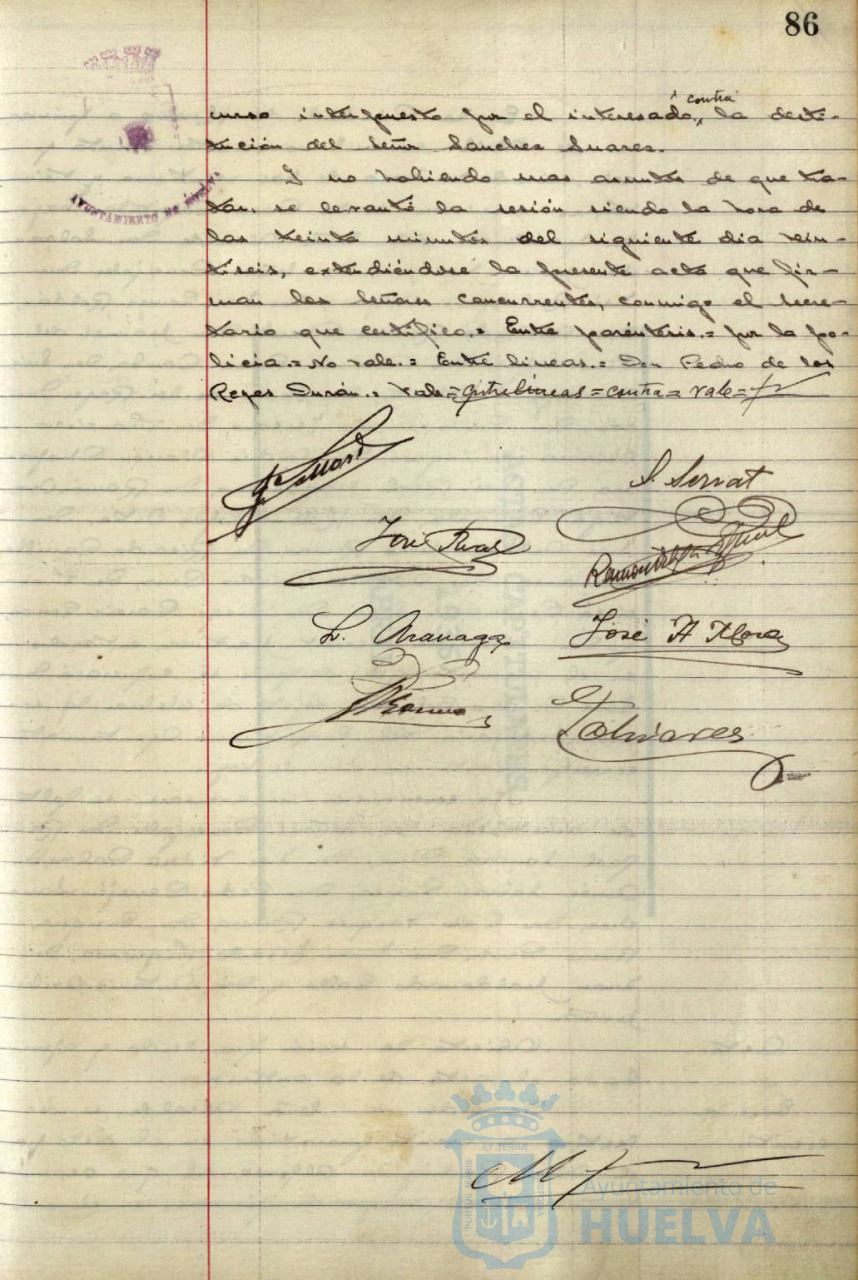 86
contra
curso interpuesto por el interesado, la desti-
tución del señor Sanchez Suarez.
Y no habiendo mas asuntos de que tra-
tar, se levantó la sesión siendo la hora de
las treinta minutos del siguiente dia vein-
tiseis, extendiéndose la presente acta que fir-
man los señores concurrentes, conmigo el secre-
tario que certifico.= Entre paréntesis.= por la po-
licia.= No vale.= Entre lineas.= Don Pedro de los
Reyes Durán.= Vale=entrelineas=contra=vale=
S. Serrat
José
L. Aranaga
José A
AYUNTAMIENTO DE HUELVA
Ayuntamiento de
HUELVA